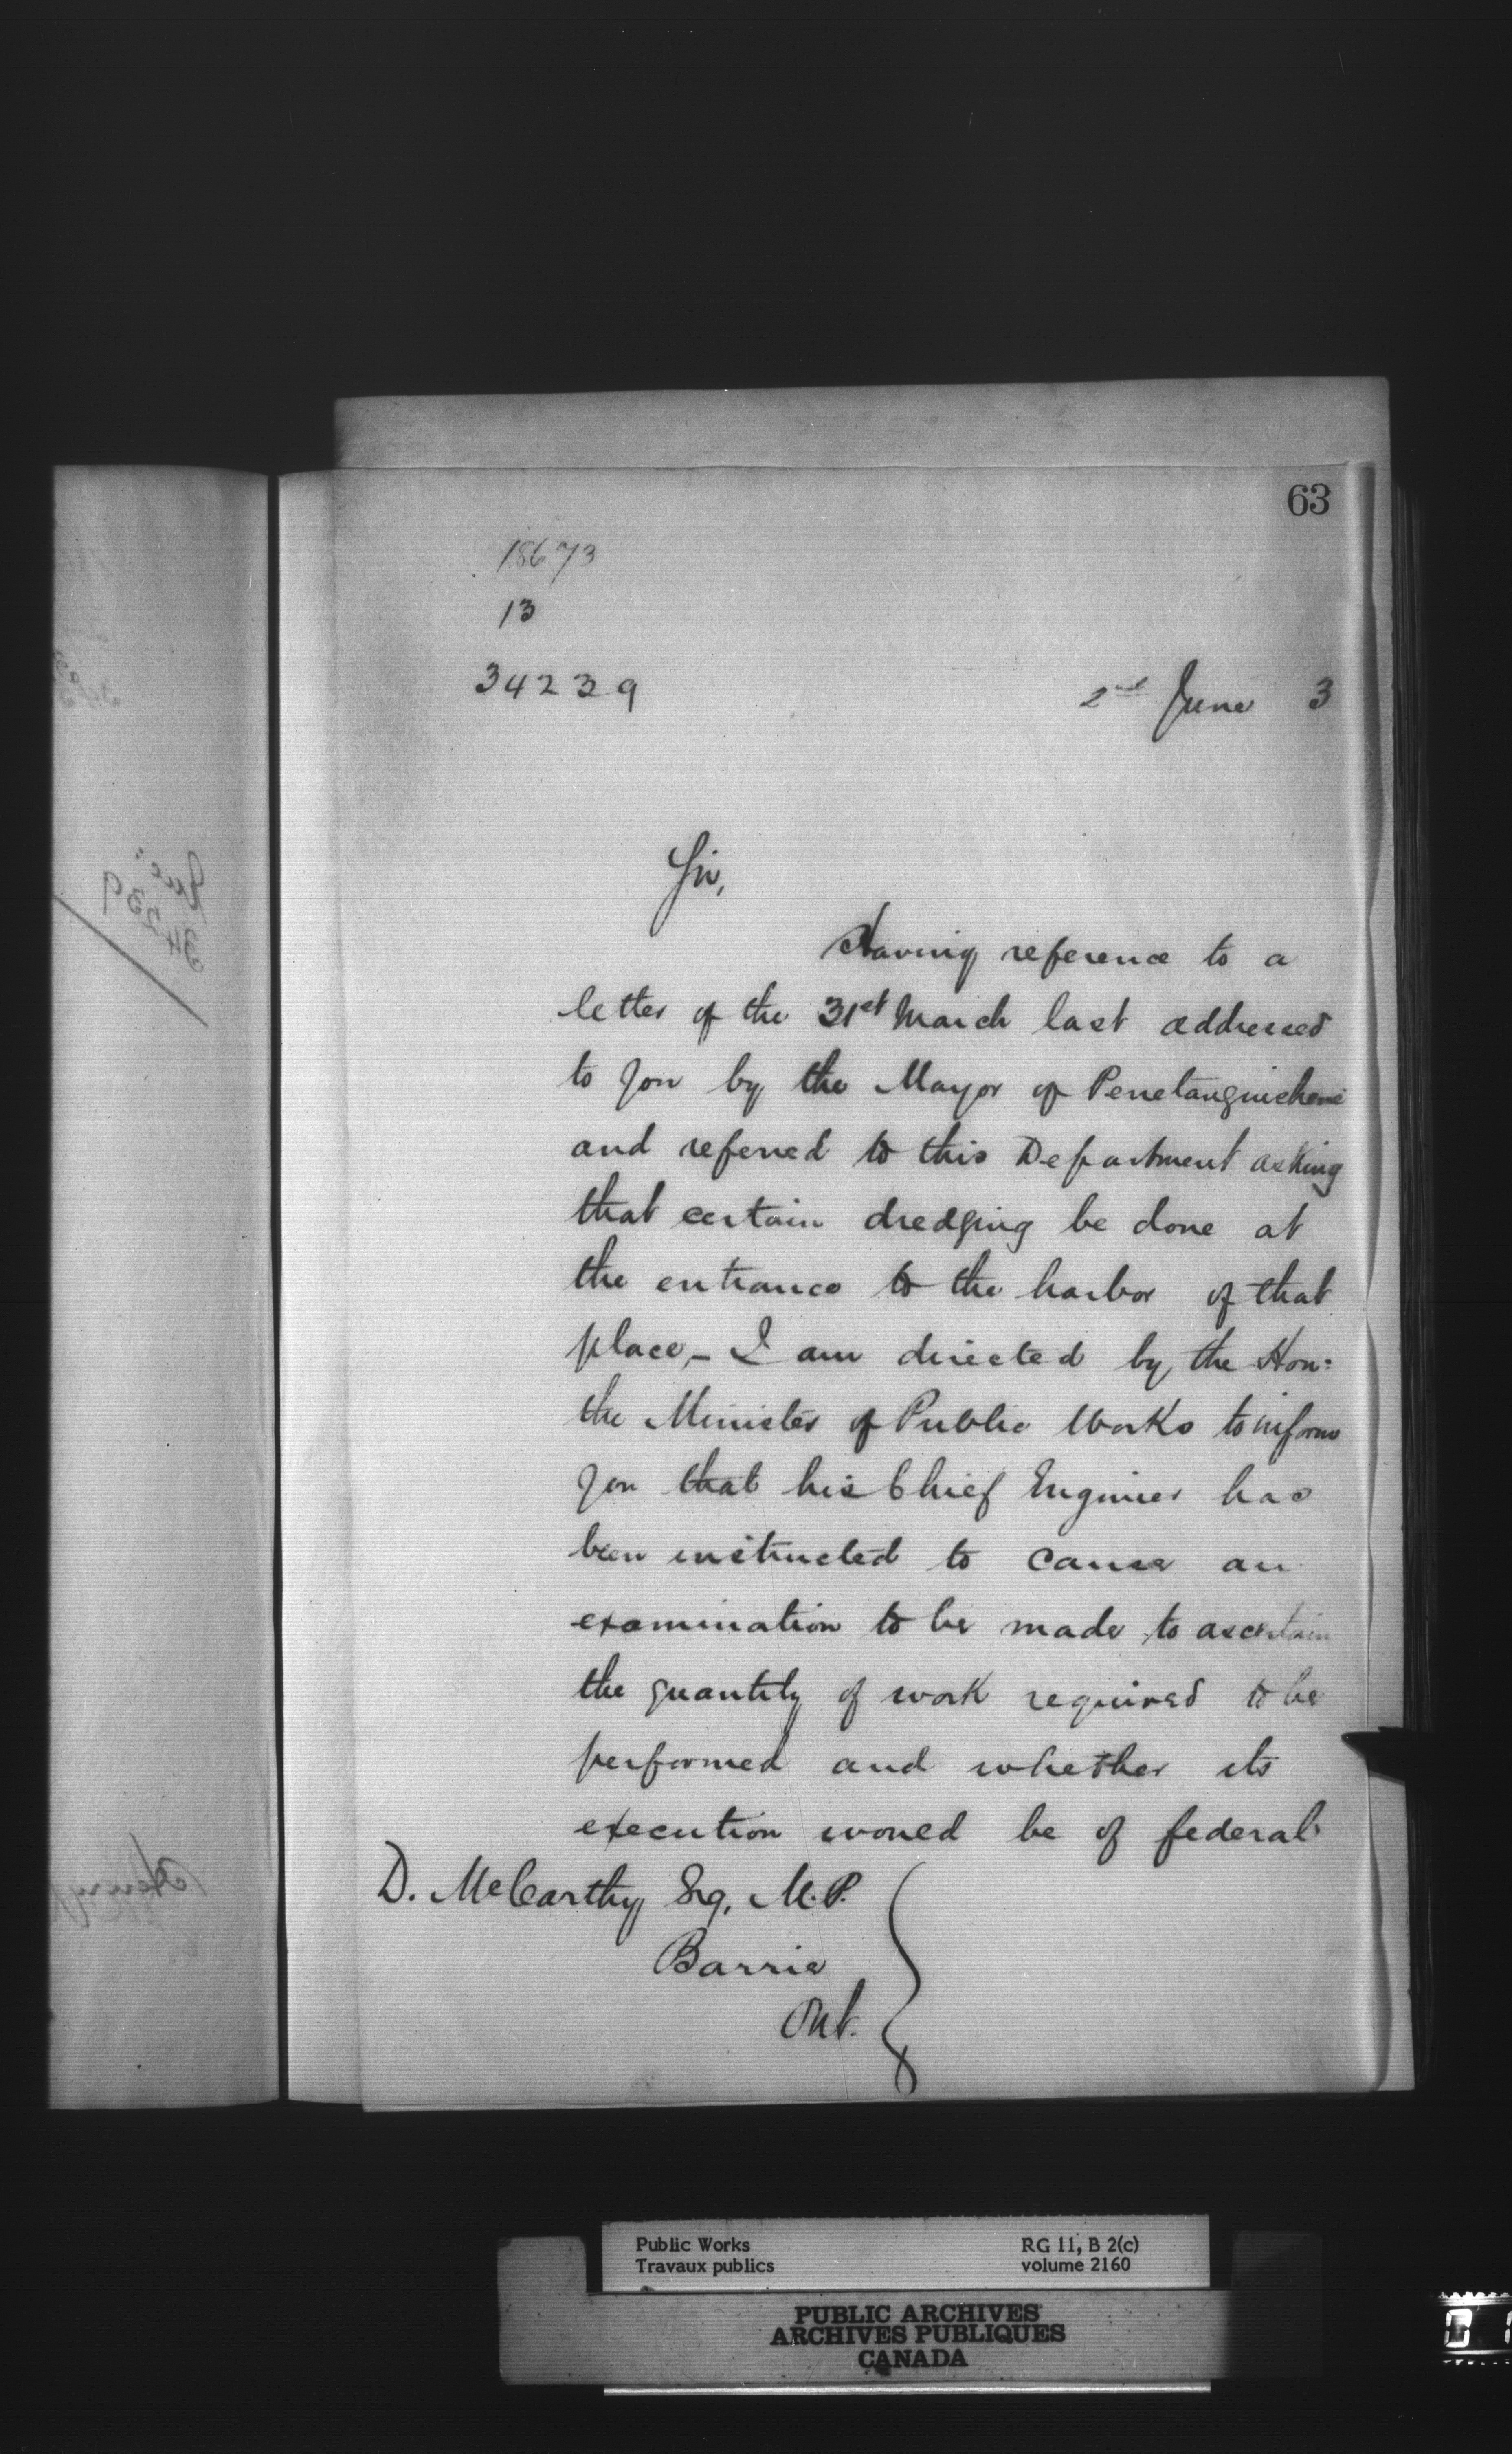 63
18673
13
34239
2nd June 3
Sir,
Having reference to a
letter of the 31st March last addressed
to you by the Mayor of Penetanguishene
and referred to this Department asking
that certain dredging be done at
the entrance to the harbor of that
place,- I am directed by the Hon:
the Minister of Public Works to inform
you that his Chief Engineer has
been instructed to cause an
examination to be made to ascertain
the quantity of work required to be
performed and whether its
execution would be of federal
D. McCarthy Esq, M.P.
Barrie
Ont.
Public Works
Travaux publics
RG 11, B 2(c)
volume 2160
PUBLIC ARCHIVES
ARCHIVES PUBLIQUES
CANADA